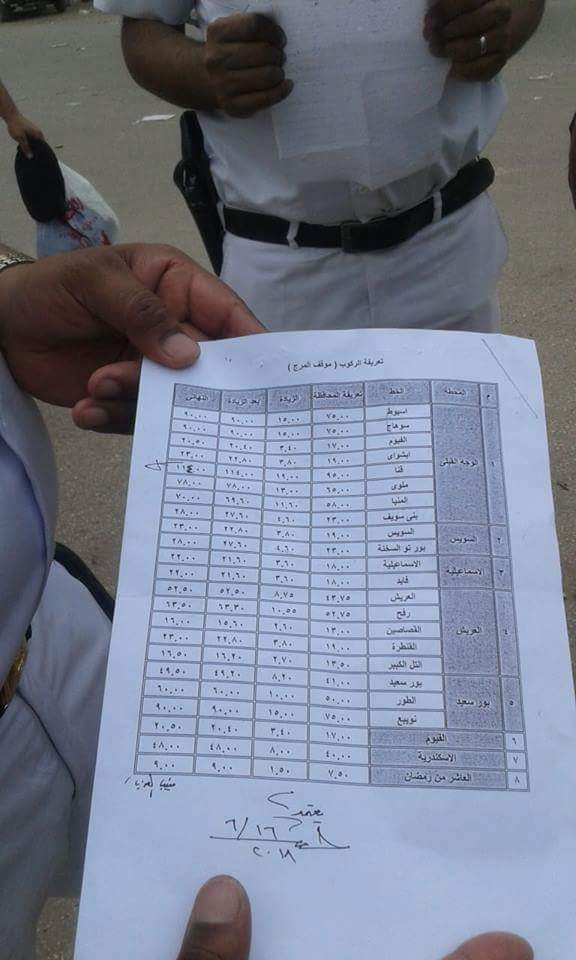 تعريفة الركوب ( موقف المرج )
م المحطة الخط تعريفة المحافظة الزيادة بعد الزيادة النهائى
١ الوجه القبلى اسيوط ٧٥,٠٠ ١٥,٠٠ ٩٠,٠٠ ٩٠,٠٠
سوهاج ٧٥,٠٠ ١٥,٠٠ ٩٠,٠٠ ٩٠,٠٠
الفيوم ١٧,٠٠ ٣,٤٠ ٢٠,٤٠ ٢٠,٥٠
ابشواى ١٩,٠٠ ٣,٨٠ ٢٢,٨٠ ٢٣,٠٠
قنا ٩٥,٠٠ ١٩,٠٠ ١١٤,٠٠ ١١٤,٠٠
ملوى ٦٥,٠٠ ١٣,٠٠ ٧٨,٠٠ ٧٨,٠٠
المنيا ٥٨,٠٠ ١١,٦٠ ٦٩,٦٠ ٧٠,٠٠
بنى سويف ٢٣,٠٠ ٤,٦٠ ٢٧,٦٠ ٢٨,٠٠
٢ السويس السويس ١٩,٠٠ ٣,٨٠ ٢٢,٨٠ ٢٣,٠٠
بور تو السخنة ٢٣,٠٠ ٤,٦٠ ٢٧,٦٠ ٢٨,٠٠
٣ الاسماعيلية الاسماعيلية ١٨,٠٠ ٣,٦٠ ٢١,٦٠ ٢٢,٠٠
فايد ١٨,٠٠ ٣,٦٠ ٢١,٦٠ ٢٢,٠٠
٤ العريش العريش ٤٣,٧٥ ٨,٧٥ ٥٢,٥٠ ٥٢,٥٠
رفح ٥٢,٧٥ ١٠,٥٥ ٦٣,٣٠ ٦٣,٥٠
القصاصين ١٣,٠٠ ٢,٦٠ ١٥,٦٠ ١٦,٠٠
القنطرة ١٩,٠٠ ٣,٨٠ ٢٢,٨٠ ٢٣,٠٠
التل الكبير ١٣,٥٠ ٢,٧٠ ١٦,٢٠ ١٦,٥٠
٥ بور سعيد بور سعيد ٤١,٠٠ ٨,٢٠ ٤٩,٢٠ ٤٩,٥٠
الطور ٥٠,٠٠ ١٠,٠٠ ٦٠,٠٠ ٦٠,٠٠
نويبع ٧٥,٠٠ ١٥,٠٠ ٩٠,٠٠ ٩٠,٠٠
٦ الفيوم ١٧,٠٠ ٣,٤٠ ٢٠,٤٠ ٢٠,٥٠
٧ الاسكندرية ٤٠,٠٠ ٨,٠٠ ٤٨,٠٠ ٤٨,٠٠
٨ العاشر من رمضان ٧,٥٠ ١,٥٠ ٩,٠٠ ٩,٠٠
يعتمد
٦/١٦
٢٠١٨